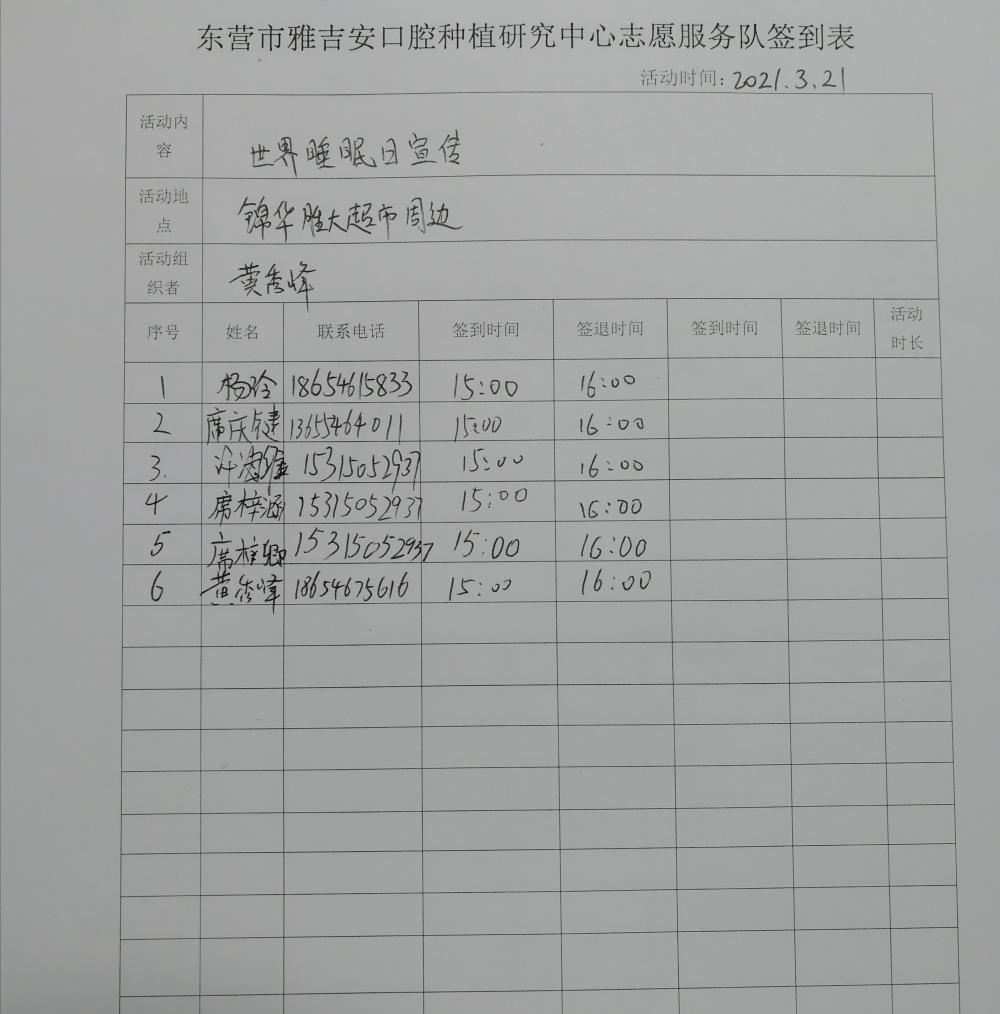 东营市雅吉安口腔种植研究中心志愿服务队签到表
活动时间：2021.3.21
活动内容 世界睡眠日宣传
活动地点 锦华胜大超市周边
活动组织者 黄秀峰
序号 姓名 联系电话 签到时间 签退时间 签到时间 签退时间 活动时长
1 杨玲 18654615833 15:00 16:00
2 席庆健 13655464011 15:00 16:00
3. 许海 15315052937 15:00 16:00
4 席梓涵 15315052937 15:00 16:00
5 席梓卿 15315052937 15:00 16:00
6 黄秀峰 18654675616 15:00 16:00